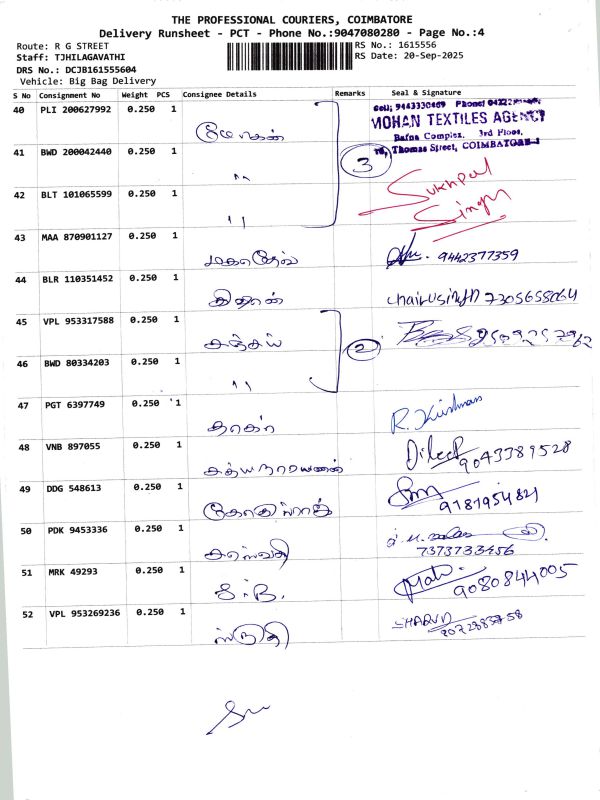 THE PROFESSIONAL COURIERS, COIMBATORE
Delivery Runsheet - PCT - Phone No.:9047080280 - Page No.:4
Route: R G STREET
RS No.: 1615556
Staff: TJHILAGAVATHI
RS Date: 20-Sep-2025
DRS No.: DCJB161555604
Vehicle: Big Bag Delivery
S No Consignment No Weight PCS Consignee Details Remarks Seal & Signature
40 PLI 200627992 0.250 1
MOHAN TEXTILES AGENCY
Bafna Complex, 3rd Floor,
Thomas Street, COIMBATORE-1
41 BWD 200042440 0.250 1 " 3
42 BLT 101065599 0.250 1 " Sukhpal
Singh
43 MAA 870901127 0.250 1 மகாதேவ் 9442377359
44 BLR 110351452 0.250 1 7305658064
45 VPL 953317588 0.250 1 சஞ்சய் 2
46 BWD 80334203 0.250 1 "
47 PGT 6397749 0.250 1 R. Krishnan
48 VNB 897055 0.250 1 சத்யநாராயணன் Dileep
9043389528
49 DDG 548613 0.250 1 9181954821
50 PDK 9453336 0.250 1
7373733456
51 MRK 49293 0.250 1 S.B. 9080844005
52 VPL 953269236 0.250 1 ஸ்ருதி